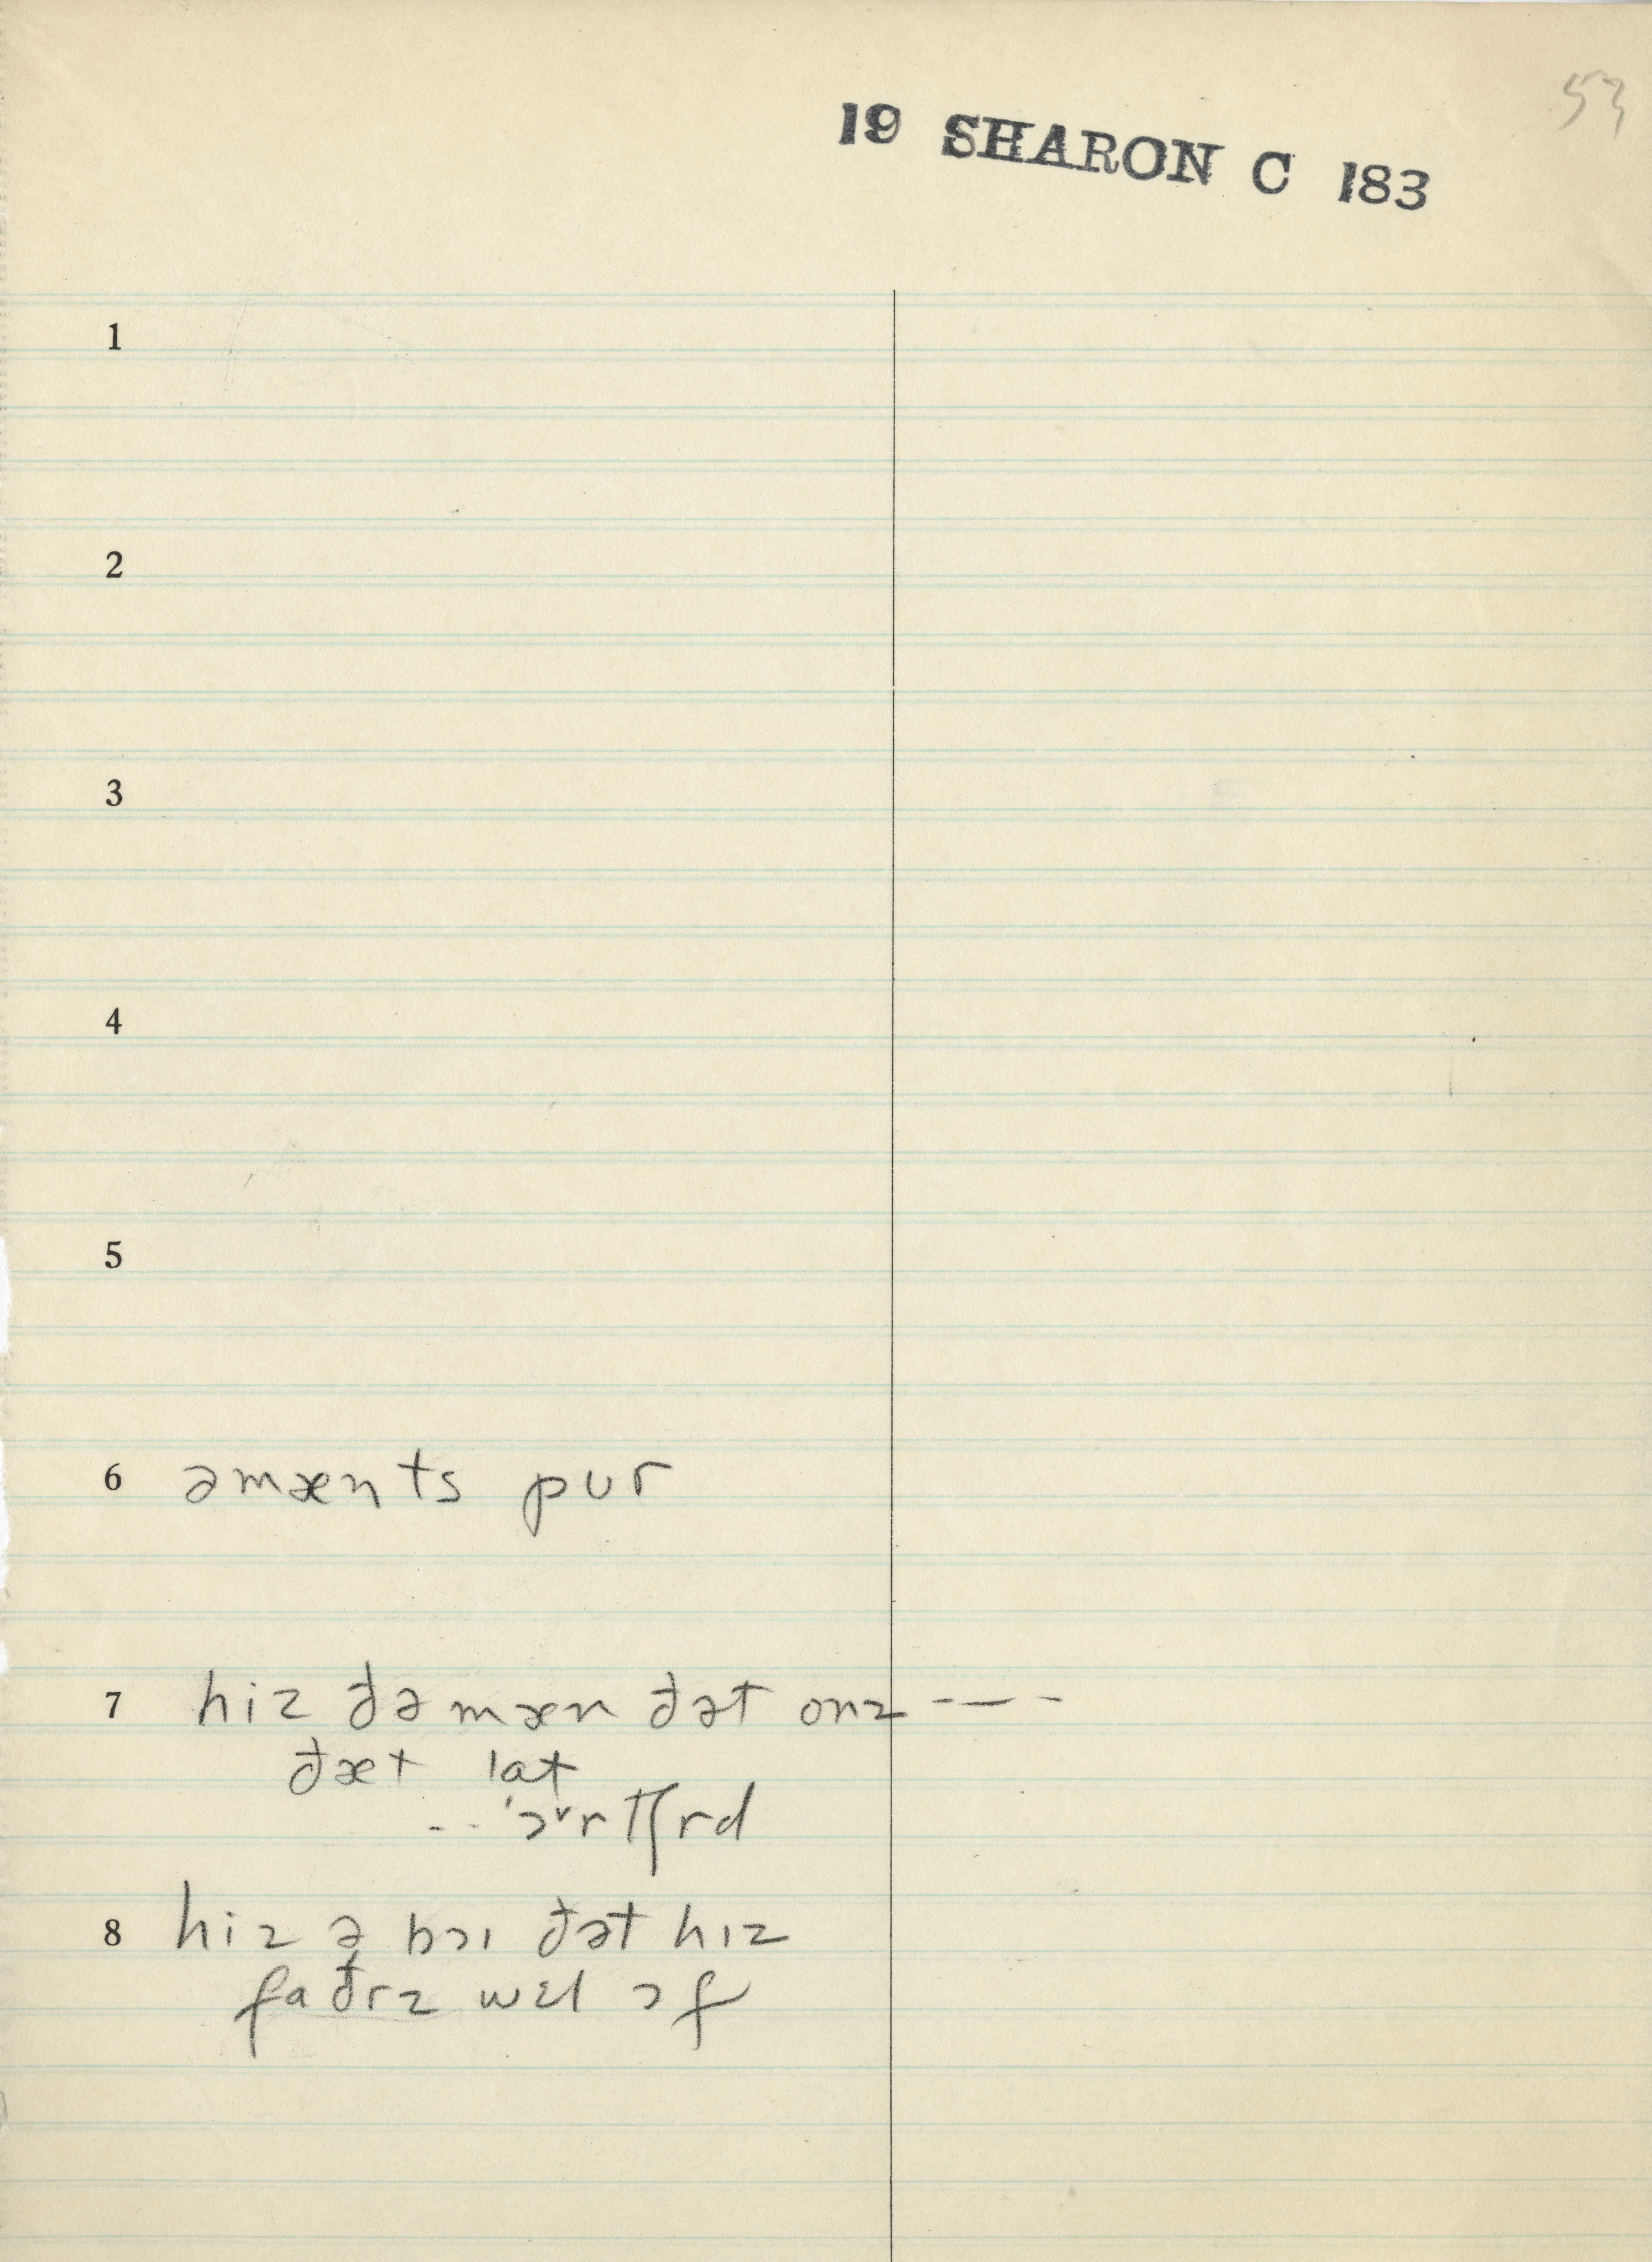 53
19 SHARON C 183
1
2
3
4
5
6 əmænts pur
7 hiz ðə mæn ðət onz - — -
ðæt lat
-- 'ɔᵛrtʃrd
8 hiz ə bɔɪ ðət hɪz
faðrz wɛl ɔf